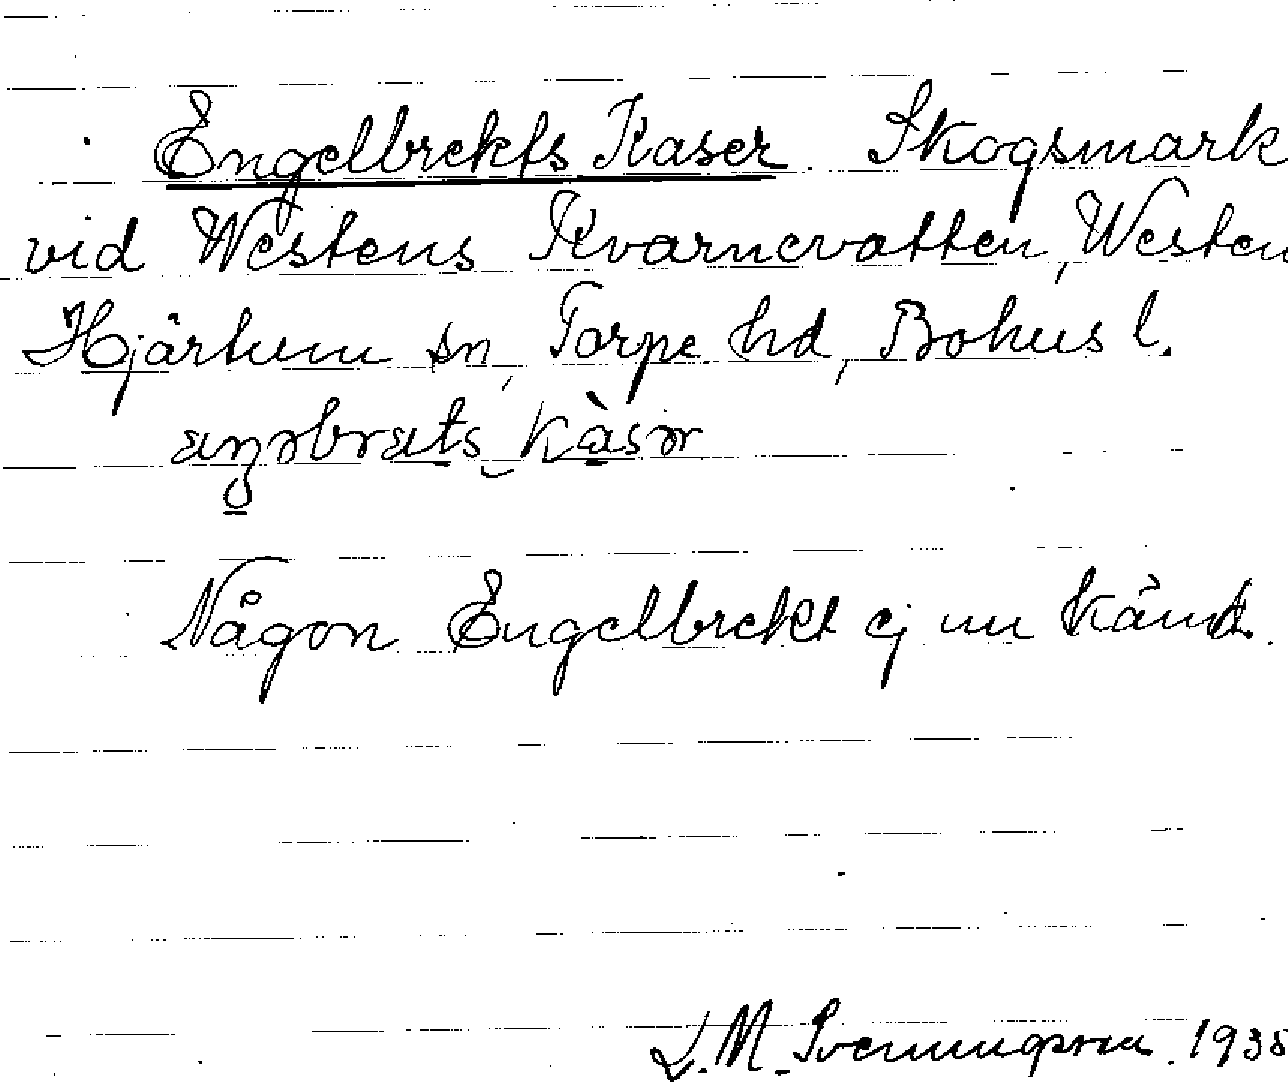 Engelbrekts Kaser. Skogsmark
vid Westens Kvarnevatten, Westen
Hjärtum sn, Torpe hd, Bohus l.
Någon Engelbrekt ej nu känd.
L. M. Svenungsson. 1935